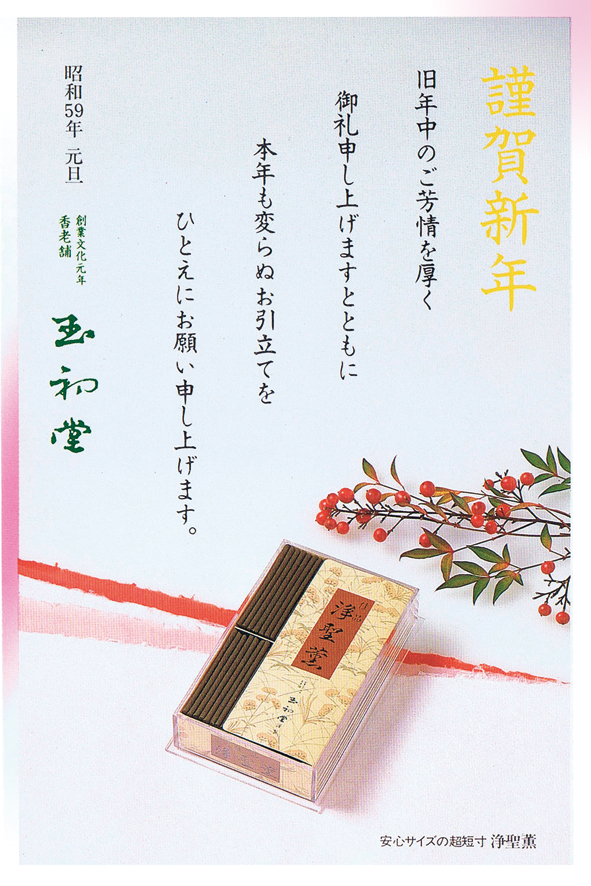 謹賀新年
旧年中のご芳情を厚く
御礼申し上げますとともに
本年も変らぬお引立てを
ひとえにお願い申し上げます。
昭和59年 元旦
創業文化元年
香老舗
玉初堂
浄聖薫
玉初堂
安心サイズの超短寸 浄聖薫